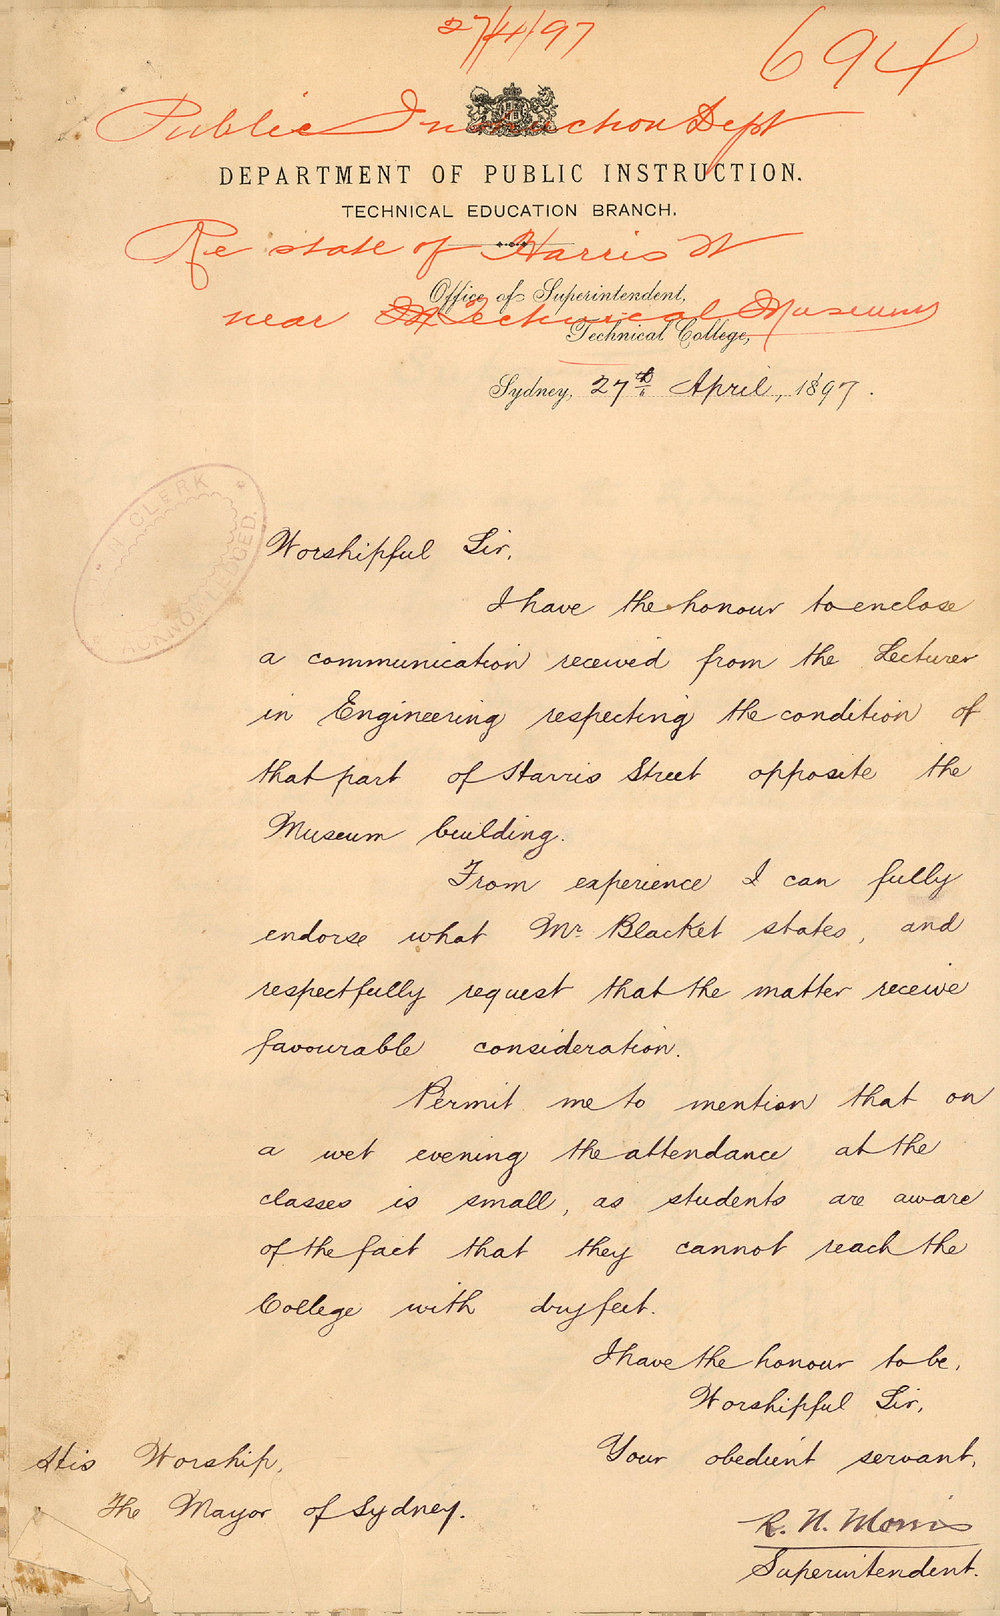 27/4/97
694
Public Instruction Dept
DEPARTMENT OF PUBLIC INSTRUCTION.
TECHNICAL EDUCATION BRANCH.
Re state of Harris St
Office of Superintendent,
near Technical Museum
Technical College,
Sydney, 27th April, 1897.
CLERK
ACKNOWLEDGED.
Worshipful Sir,
I have the honour to enclose
a communication received from the Lecturer
in Engineering respecting the condition of
that part of Harris Street opposite the
Museum building.
From experience I can fully
endorse what Mr. Blacket states, and
respectfully request that the matter receive
favourable consideration.
Permit me to mention that on
a wet evening the attendance at the
classes is small, as students are aware
of the fact that they cannot reach the
College with dry feet.
I have the honour to be,
Worshipful Sir,
Your obedient servant,
R. N. Morris
Superintendent.
His Worship,
The Mayor of Sydney.